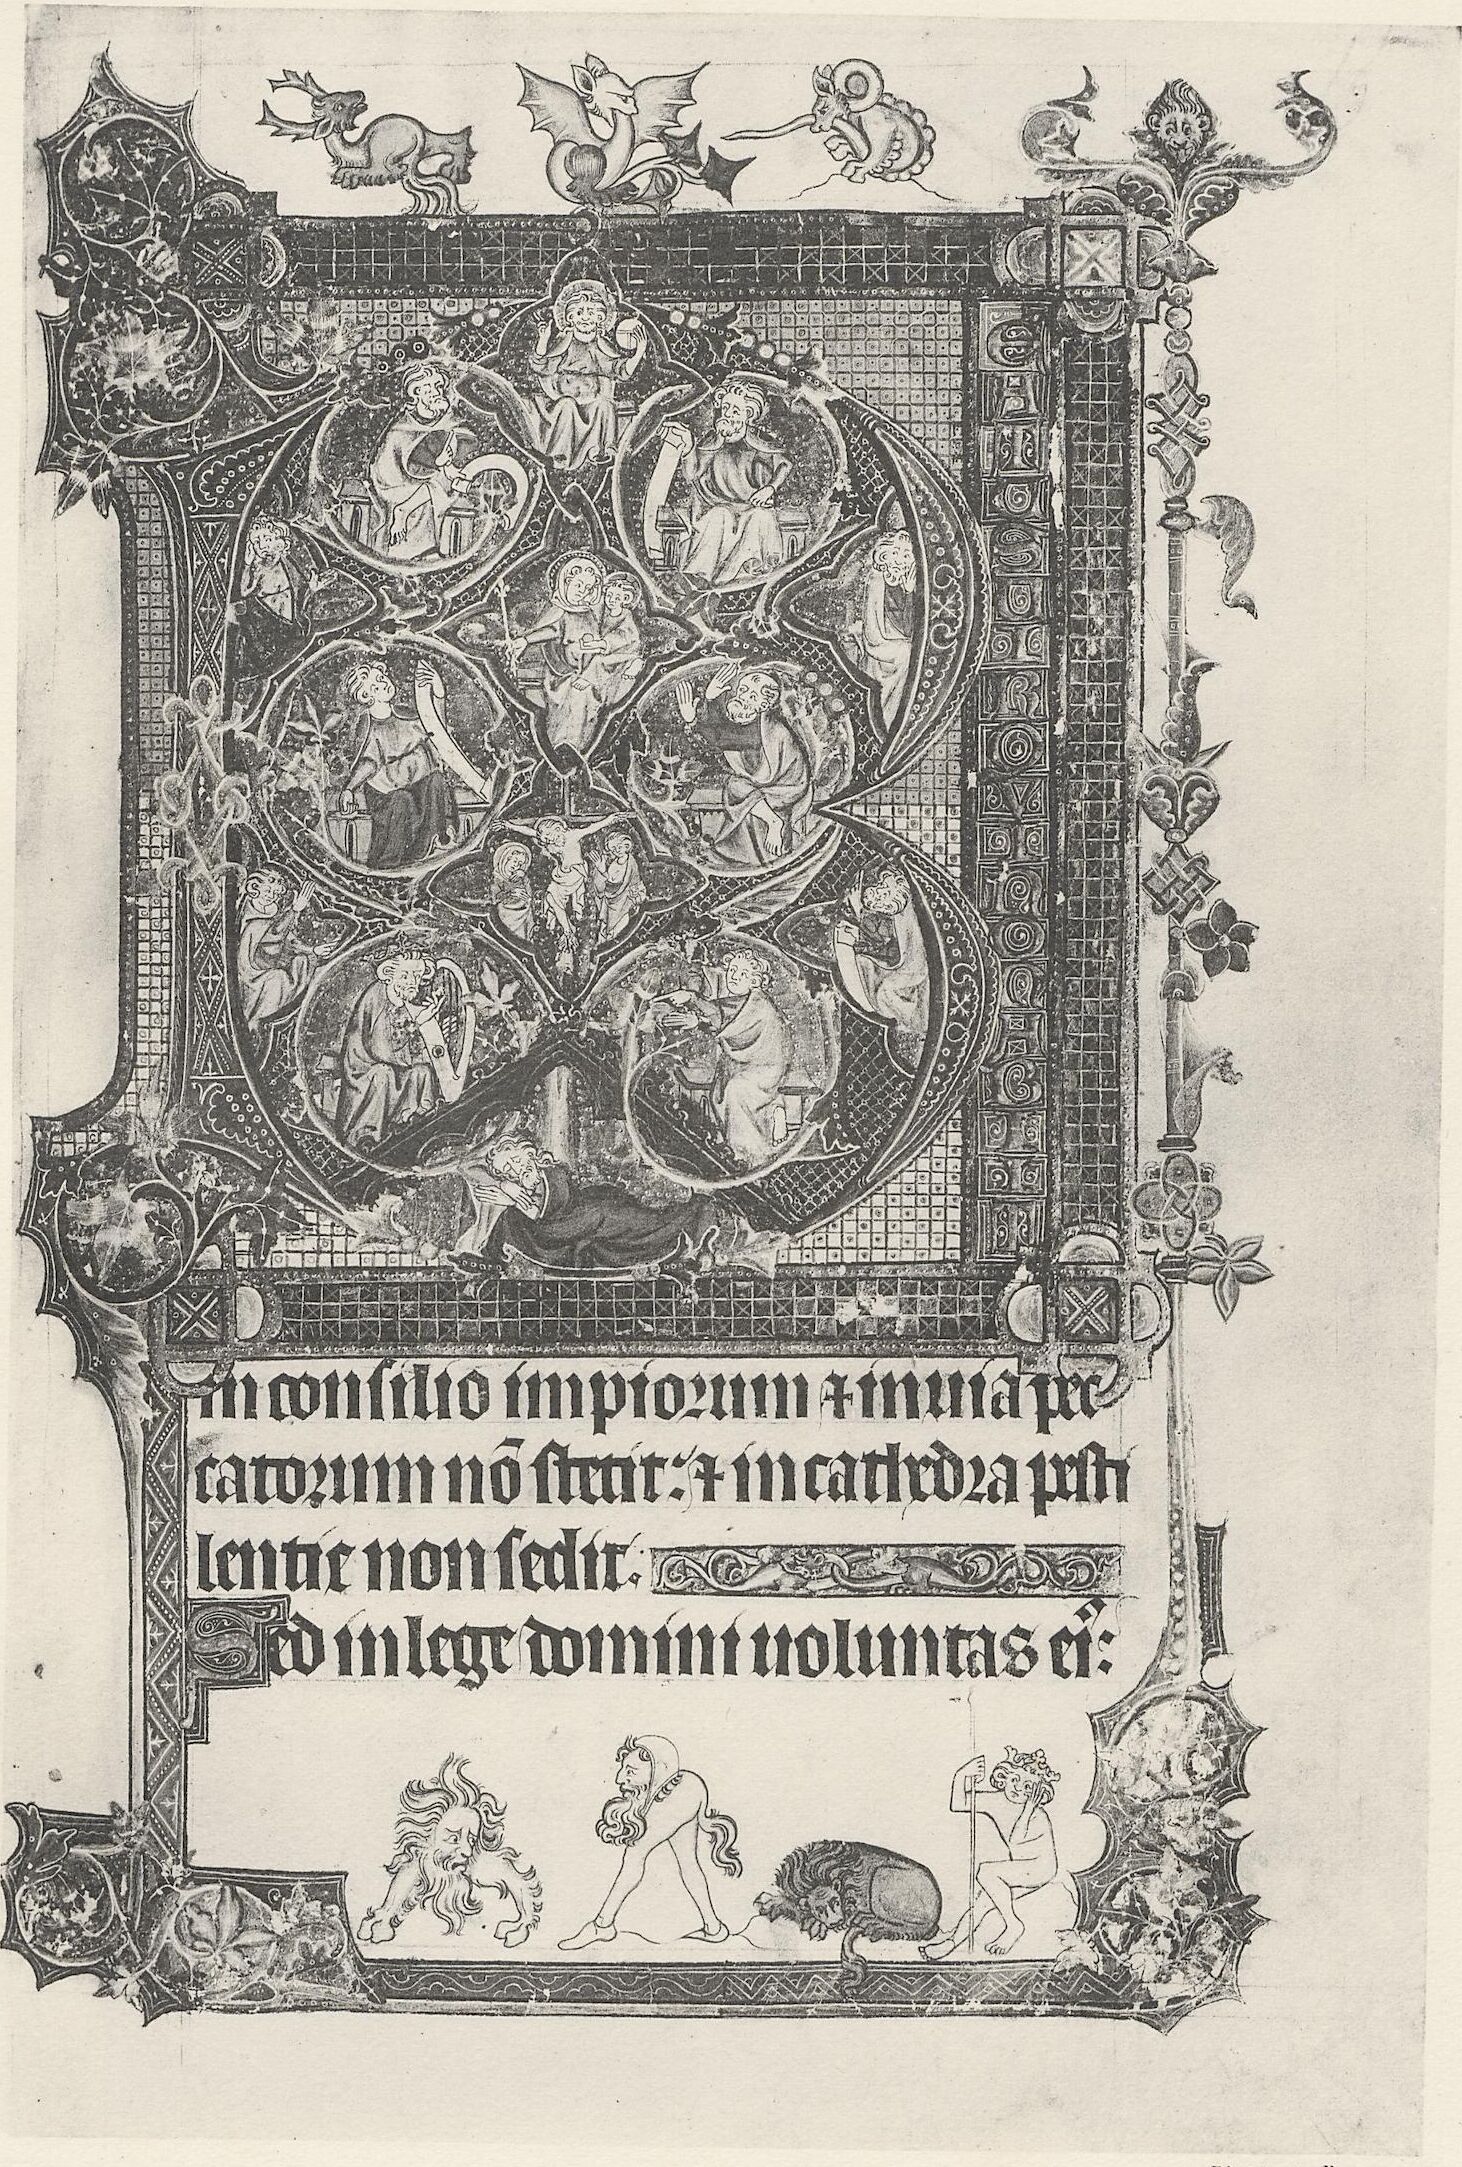 BEATVS VIR QVI NON ABIIT
in consilio impiorum ⁊ in uia pec
catorum nō stetit: ⁊ in cathedra pesti
lentie non sedit.
Sed in lege domini uoluntas eiꝰ: